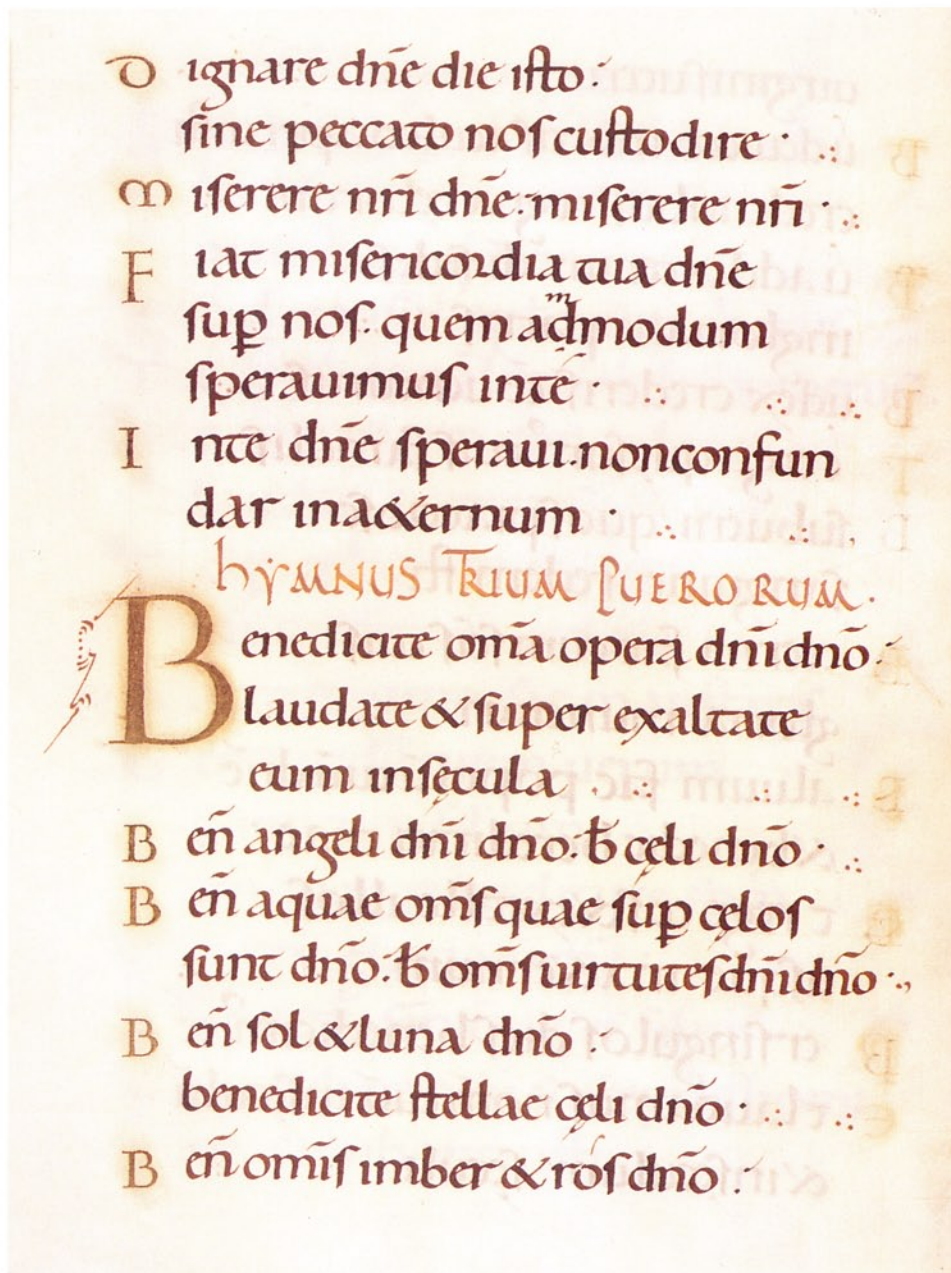 Dignare dn̄e die iſto·
ſine peccato noſ cuſtodire·
Miſerere nr̄i dn̄e: miſerere nr̄i·
Fiat miſericordia tua dn̄e
ſup̲ noſ. quem ad̾modum
ſperauimuſ inte·
Inte dn̄e ſperaui. nonconfun
dar ina&ernum·
hYMNUS TRIUM PUERORUM·
Benedicite om̄a opera dn̄i dn̄o:
laudate & ſuper exaltate
eum inſęcula
Ben̄ angeli dn̄i dn̄o: b̄ cęli dn̄o·
Ben̄ aquae om̄ſ quae ſup̲ cęloſ
ſunt dn̄o: b̄ om̄ſ uirtuteſ dn̄i dn̄o·
Ben̄ ſol & luna dn̄o·
benedicite ſtellae cęli dn̄o·
Ben̄ om̄iſ imber & roſ dn̄o·